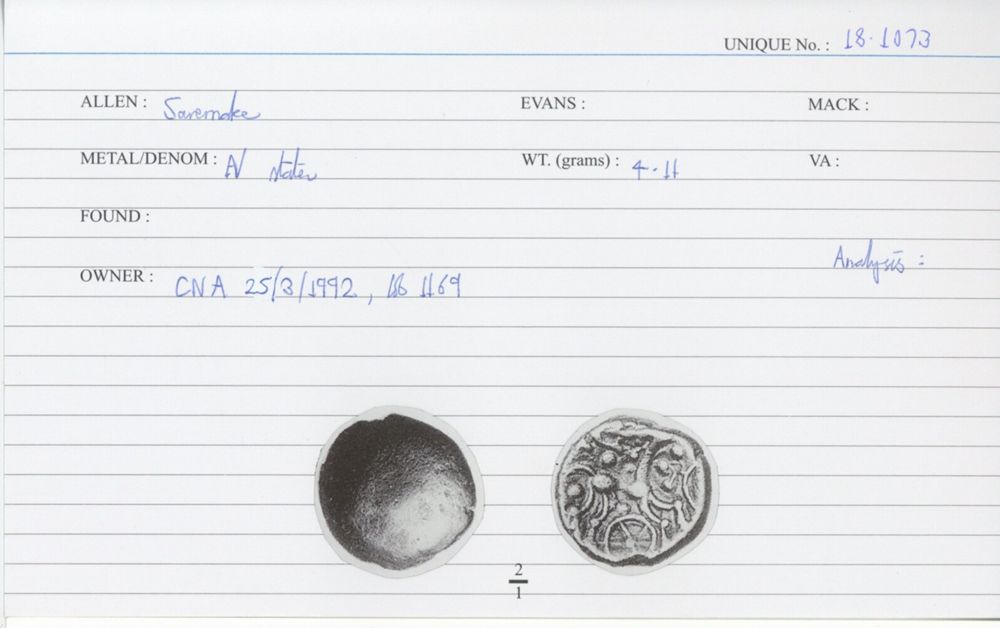 UNIQUE No. : 18.1073
ALLEN : Savernake EVANS : MACK :
METAL/DENOM : AV stater WT. (grams) : 4.11 VA :
FOUND :
Analysis :
OWNER : CNA 25/3/1992, 1169
2
1